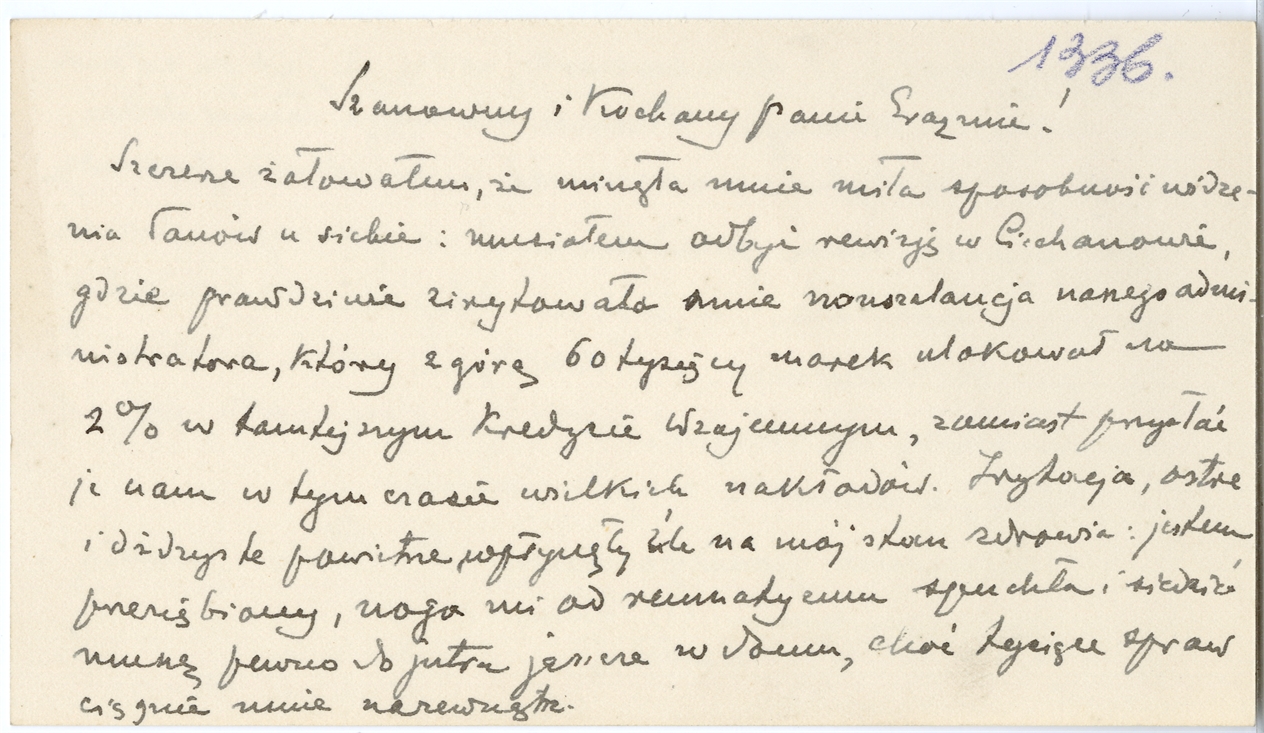 1336.
Szanowny i Kochany panie Erazmie!
Szczerze żałowałem, że minęła mnie miła sposobność widze-
nia Panów u siebie: musiałem odbyć rewizję w Ciechanowie,
gdzie prawdziwie zirytowała mnie nonszalancja naszego admi-
nistratora, który z górą 60 tysięcy marek ulokował na
2% w tamtejszym Kredycie Wzajemnym, zamiast przysłać
je nam w tym czasie wielkich nakładów. Irytacja, ostre
i dżdżyste powietrze, wpłynęły źle na mój stan zdrowia: jestem
przeziębiony, noga mi od reumatyzmu spuchła i siedzieć
muszę pewno do jutra jeszcze w domu, choć tysiące spraw
ciągnie mnie nazewnątrz.